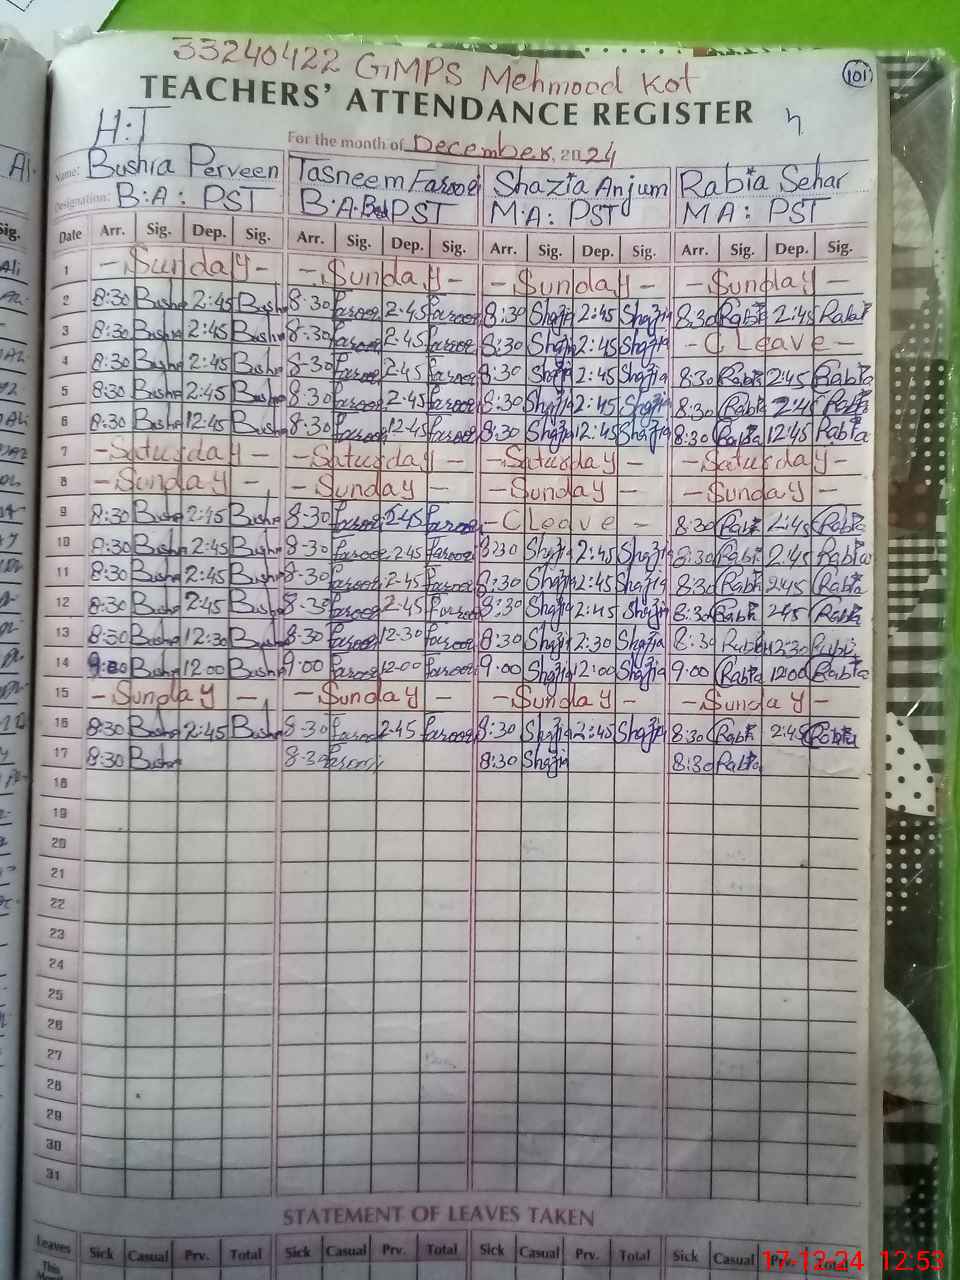 33240422 GMPS Mehmood Kot
101
TEACHERS' ATTENDANCE REGISTER
H:T
For the month of December, 2024
Name: Bushra Perveen Tasneem Farooqi Shazia Anjum Rabia Sehar
Designation: B:A: PST B.A.Bed PST M:A: PST MA: PST
Date Arr. Sig. Dep. Sig. Arr. Sig. Dep. Sig. Arr. Sig. Dep. Sig. Arr. Sig. Dep. Sig.
1 -Sunday- -Sunday- -Sunday- -Sunday-
2 8:30 Bushra 2:45 Bushra 8-30 Farooqi 2-45 Farooqi 8:30 Shazia 2:45 Shazia 8:30 Rabia 2:45 Rabia
3 8:30 Bushra 2:45 Bushra 8-30 Farooqi 2-45 Farooqi 8:30 Shazia 2:45 Shazia - C Leave -
4 8:30 Bushra 2:45 Bushra 8-30 Farooqi 2-45 Farooqi 8:30 Shazia 2:45 Shazia 8:30 Rabia 2:45 Rabia
5 8:30 Bushra 2:45 Bushra 8-30 Farooqi 2-45 Farooqi 8:30 Shazia 2:45 Shazia 8:30 Rabia 2:45 Rabia
6 8:30 Bushra 12:45 Bushra 8-30 Farooqi 12-45 Farooqi 8:30 Shazia 12:45 Shazia 8:30 Rabia 12:45 Rabia
7 -Saturday- -Saturday- -Saturday- -Saturday-
8 -Sunday- -Sunday- -Sunday- -Sunday-
9 8:30 Bushra 2:45 Bushra 8-30 Farooqi 2-45 Farooqi - C Leave - 8:30 Rabia 2:45 Rabia
10 8:30 Bushra 2:45 Bushra 8-30 Farooqi 2-45 Farooqi 8:30 Shazia 2:45 Shazia 8:30 Rabia 2:45 Rabia
11 8:30 Bushra 2:45 Bushra 8-30 Farooqi 2-45 Farooqi 8:30 Shazia 2:45 Shazia 8:30 Rabia 2:45 Rabia
12 8:30 Bushra 2:45 Bushra 8-30 Farooqi 2-45 Farooqi 8:30 Shazia 2:45 Shazia 8:30 Rabia 2:45 Rabia
13 8:30 Bushra 12:30 Bushra 8-30 Farooqi 12-30 Farooqi 8:30 Shazia 12:30 Shazia 8:30 Rabia 12:30 Rabia
14 9:00 Bushra 12:00 Bushra 9:00 Farooqi 12-00 Farooqi 9:00 Shazia 12:00 Shazia 9:00 Rabia 12:00 Rabia
15 -Sunday- -Sunday- -Sunday- -Sunday-
16 8:30 Bushra 2:45 Bushra 8-30 Farooqi 2-45 Farooqi 8:30 Shazia 2:45 Shazia 8:30 Rabia 2:45 Rabia
17 8:30 Bushra 8-30 Farooqi 8:30 Shazia 8:30 Rabia
18
19
20
21
22
23
24
25
26
27
28
29
30
31
STATEMENT OF LEAVES TAKEN
Leaves Sick Casual Prv. Total Sick Casual Prv. Total Sick Casual Prv. Total Sick Casual Prv. Total
This
17-12-24 12:53